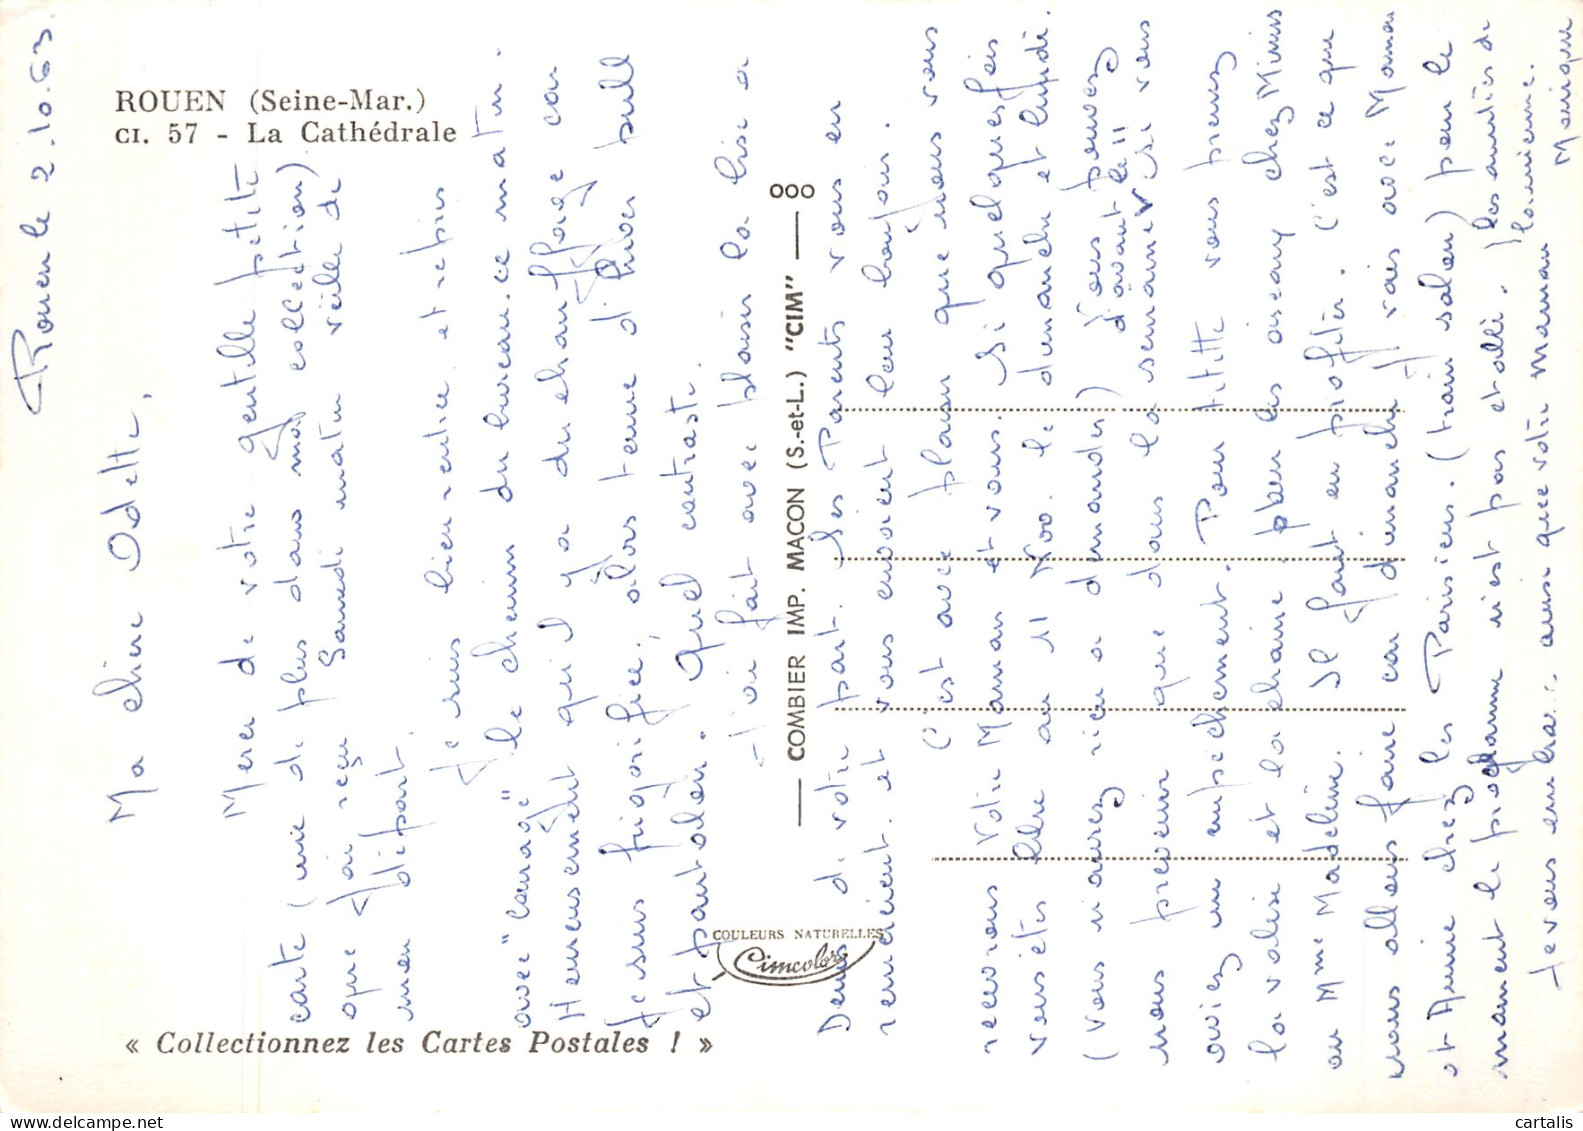 ROUEN (Seine-Mar.)
CI. 57 - La Cathédrale
Rouen le 2.10.63.
Ma chère Odette,
Merci de votre gentille petite
carte (une de plus dans ma collection)
que j'ai reçu Samedi matin veille de
mon départ.
Je suis bien rentrée et repris
le chemin du bureau ce matin.
avec "courage"
Heureusement qu'il y a du chauffage car
je suis frigorifiée, alors tenue d'hiver pull
et pantalon. Quel contraste.
J'ai fait avec plaisir la bise a
Denis de votre part. Ses Parents vous en
remercient et vous envoient leur bonjour.
C'est avec plaisir que nous vous
recevrons votre Maman et vous. Si quelquefois
vous êtes libre au 11 Nov. le dimanche et lundi.
(vous n'aurez rien a demander) Vous pouvez
nous prévenir que dans la semaine d'avant le 11 si vous
aviez un empêchement. Pour titite vous prenez
la valise et la chaine pour les oiseaux chez Mimis
ou Mme Madeleine. Il faut en profiter. C'est ce que
nous allons faire car dimanche je vais avec Maman
et Annie chez les Parisiens. (train salon) pour le
moment le programme n'est pas établi.
Je vous embrasse ainsi que votre maman
les amitiés de
la mienne.
Monique
COMBIER IMP. MACON (S.-et-L.) "CIM"
000
COULEURS NATURELLES
Cimcolor
« Collectionnez les Cartes Postales ! »
cartalis